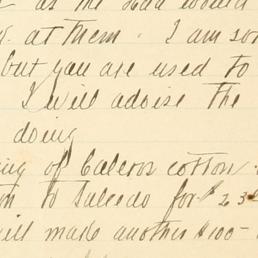 as the
at them. I am
but you are used to
I will advise the
doing
of cotton
to Salcedo for $23
will make another $100-